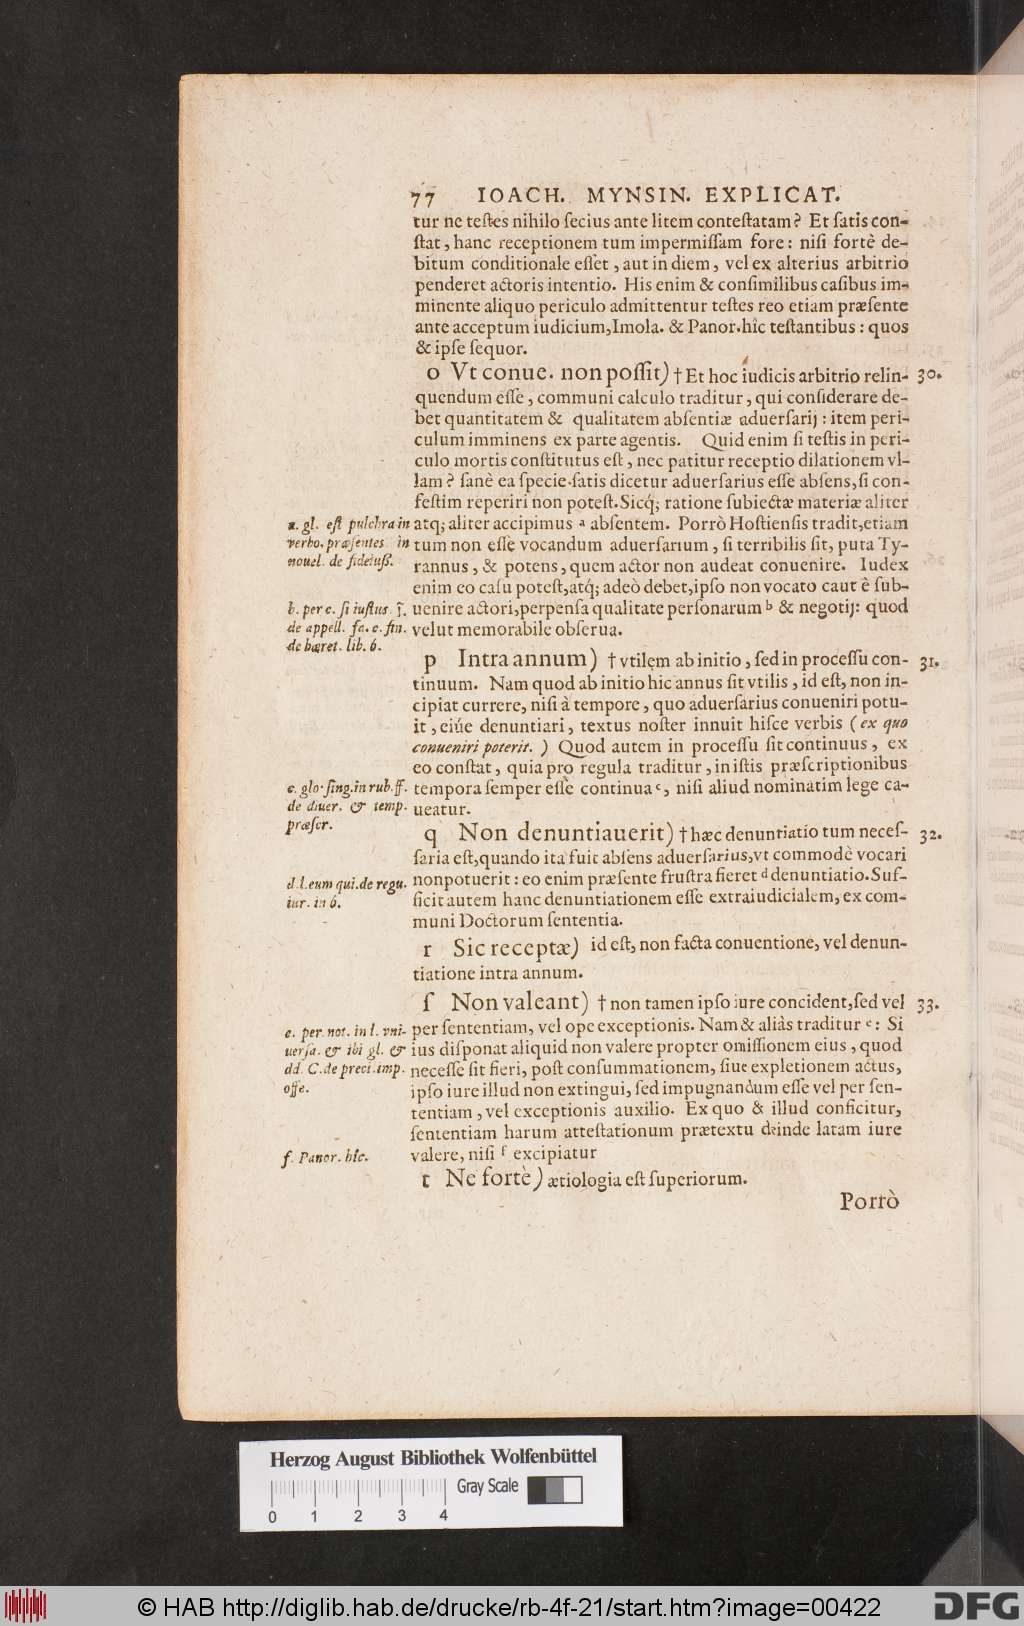 77 IOACH. MYNSIN. EXPLICAT.
tur ne teſtes nihilo ſecius ante litem conteſtatam? Et ſatis con-
ſtat, hanc receptionem tum impermiſſam fore: niſi fortè de-
bitum conditionale eſſet, aut in diem, vel ex alterius arbitrio
penderet actoris intentio. His enim & conſimilibus caſibus im-
minente aliquo periculo admittentur teſtes reo etiam præſente
ante acceptum iudicium, Imola. & Panor. hîc teſtantibus: quos
& ipſe ſequor.
o Vt conue. non poſſit) † Et hoc iudicis arbitrio relin- 30.
quendum eſſe, communi calculo traditur, qui conſiderare de-
bet quantitatem & qualitatem abſentiæ aduerſarij: item peri-
culum imminens ex parte agentis. Quid enim ſi teſtis in peri-
culo mortis conſtitutus eſt, nec patitur receptio dilationem vl-
lam? ſanè ea ſpecie ſatis dicetur aduerſarius eſſe abſens, ſi con-
feſtim reperiri non poteſt. Sicq́; ratione ſubiectæ materiæ aliter
atq; aliter accipimus ª abſentem. Porrò Hoſtienſis tradit, etiam
tum non eſſe vocandum aduerſarium, ſi terribilis ſit, puta Ty-
rannus, & potens, quem actor non audeat conuenire. Iudex
enim eo caſu poteſt, atq́; adeò debet, ipſo non vocato cautè ſub-
uenire actori, perpenſa qualitate perſonarum ᵇ & negotij: quod
velut memorabile obſerua.
a. gl. eſt pulchra in
verbo. præſentes. in
nouel. de fideiuſſ.
b. per c. ſi iuſtus. j̃.
de appell. fa. c. fin.
de hæret. lib. 6.
p Intra annum) † vtilem ab initio, ſed in proceſſu con- 31.
tinuum. Nam quod ab initio hic annus ſit vtilis, id eſt, non in-
cipiat currere, niſi à tempore, quo aduerſarius conueniri potu-
it, eiúe denuntiari, textus noſter innuit hiſce verbis (ex quo
conueniri poterit.) Quod autem in proceſſu ſit continuus, ex
eo conſtat, quia pro regula traditur, in iſtis præſcriptionibus
tempora ſemper eſſe continua ᶜ, niſi aliud nominatim lege ca-
ueatur.
c. glo. ſing. in rub. ff.
de diuer. & temp.
præſcr.
q Non denuntiauerit) † hæc denuntiatio tum neceſ- 32.
ſaria eſt, quando ita fuit abſens aduerſarius, vt commodè vocari
non potuerit: eo enim præſente fruſtra fieret ᵈ denuntiatio. Suf-
ficit autem hanc denuntiationem eſſe extraiudicialem, ex com-
muni Doctorum ſententia.
d. l. eum qui. de regu.
iur. in 6.
r Sic receptæ) id eſt, non facta conuentione, vel denun-
tiatione intra annum.
ſ Non valeant) † non tamen ipſo iure concident, ſed vel 33.
per ſententiam, vel ope exceptionis. Nam & aliàs traditur ᵉ: Si
ius diſponat aliquid non valere propter omiſſionem eius, quod
neceſſe ſit fieri, poſt conſummationem, ſiue expletionem actus,
ipſo iure illud non extingui, ſed impugnandum eſſe vel per ſen-
tentiam, vel exceptionis auxilio. Ex quo & illud conficitur,
ſententiam harum atteſtationum prætextu deinde latam iure
valere, niſi ᶠ excipiatur
e. per not. in l. vni-
uerſa. & ibi gl. &
dd. C. de preci. imp.
offe.
f. Panor. hîc.
t Ne fortè) ætiologia eſt ſuperiorum.
Porrò
Herzog August Bibliothek Wolfenbüttel
Gray Scale
0 1 2 3 4
© HAB http://diglib.hab.de/drucke/rb-4f-21/start.htm?image=00422
DFG